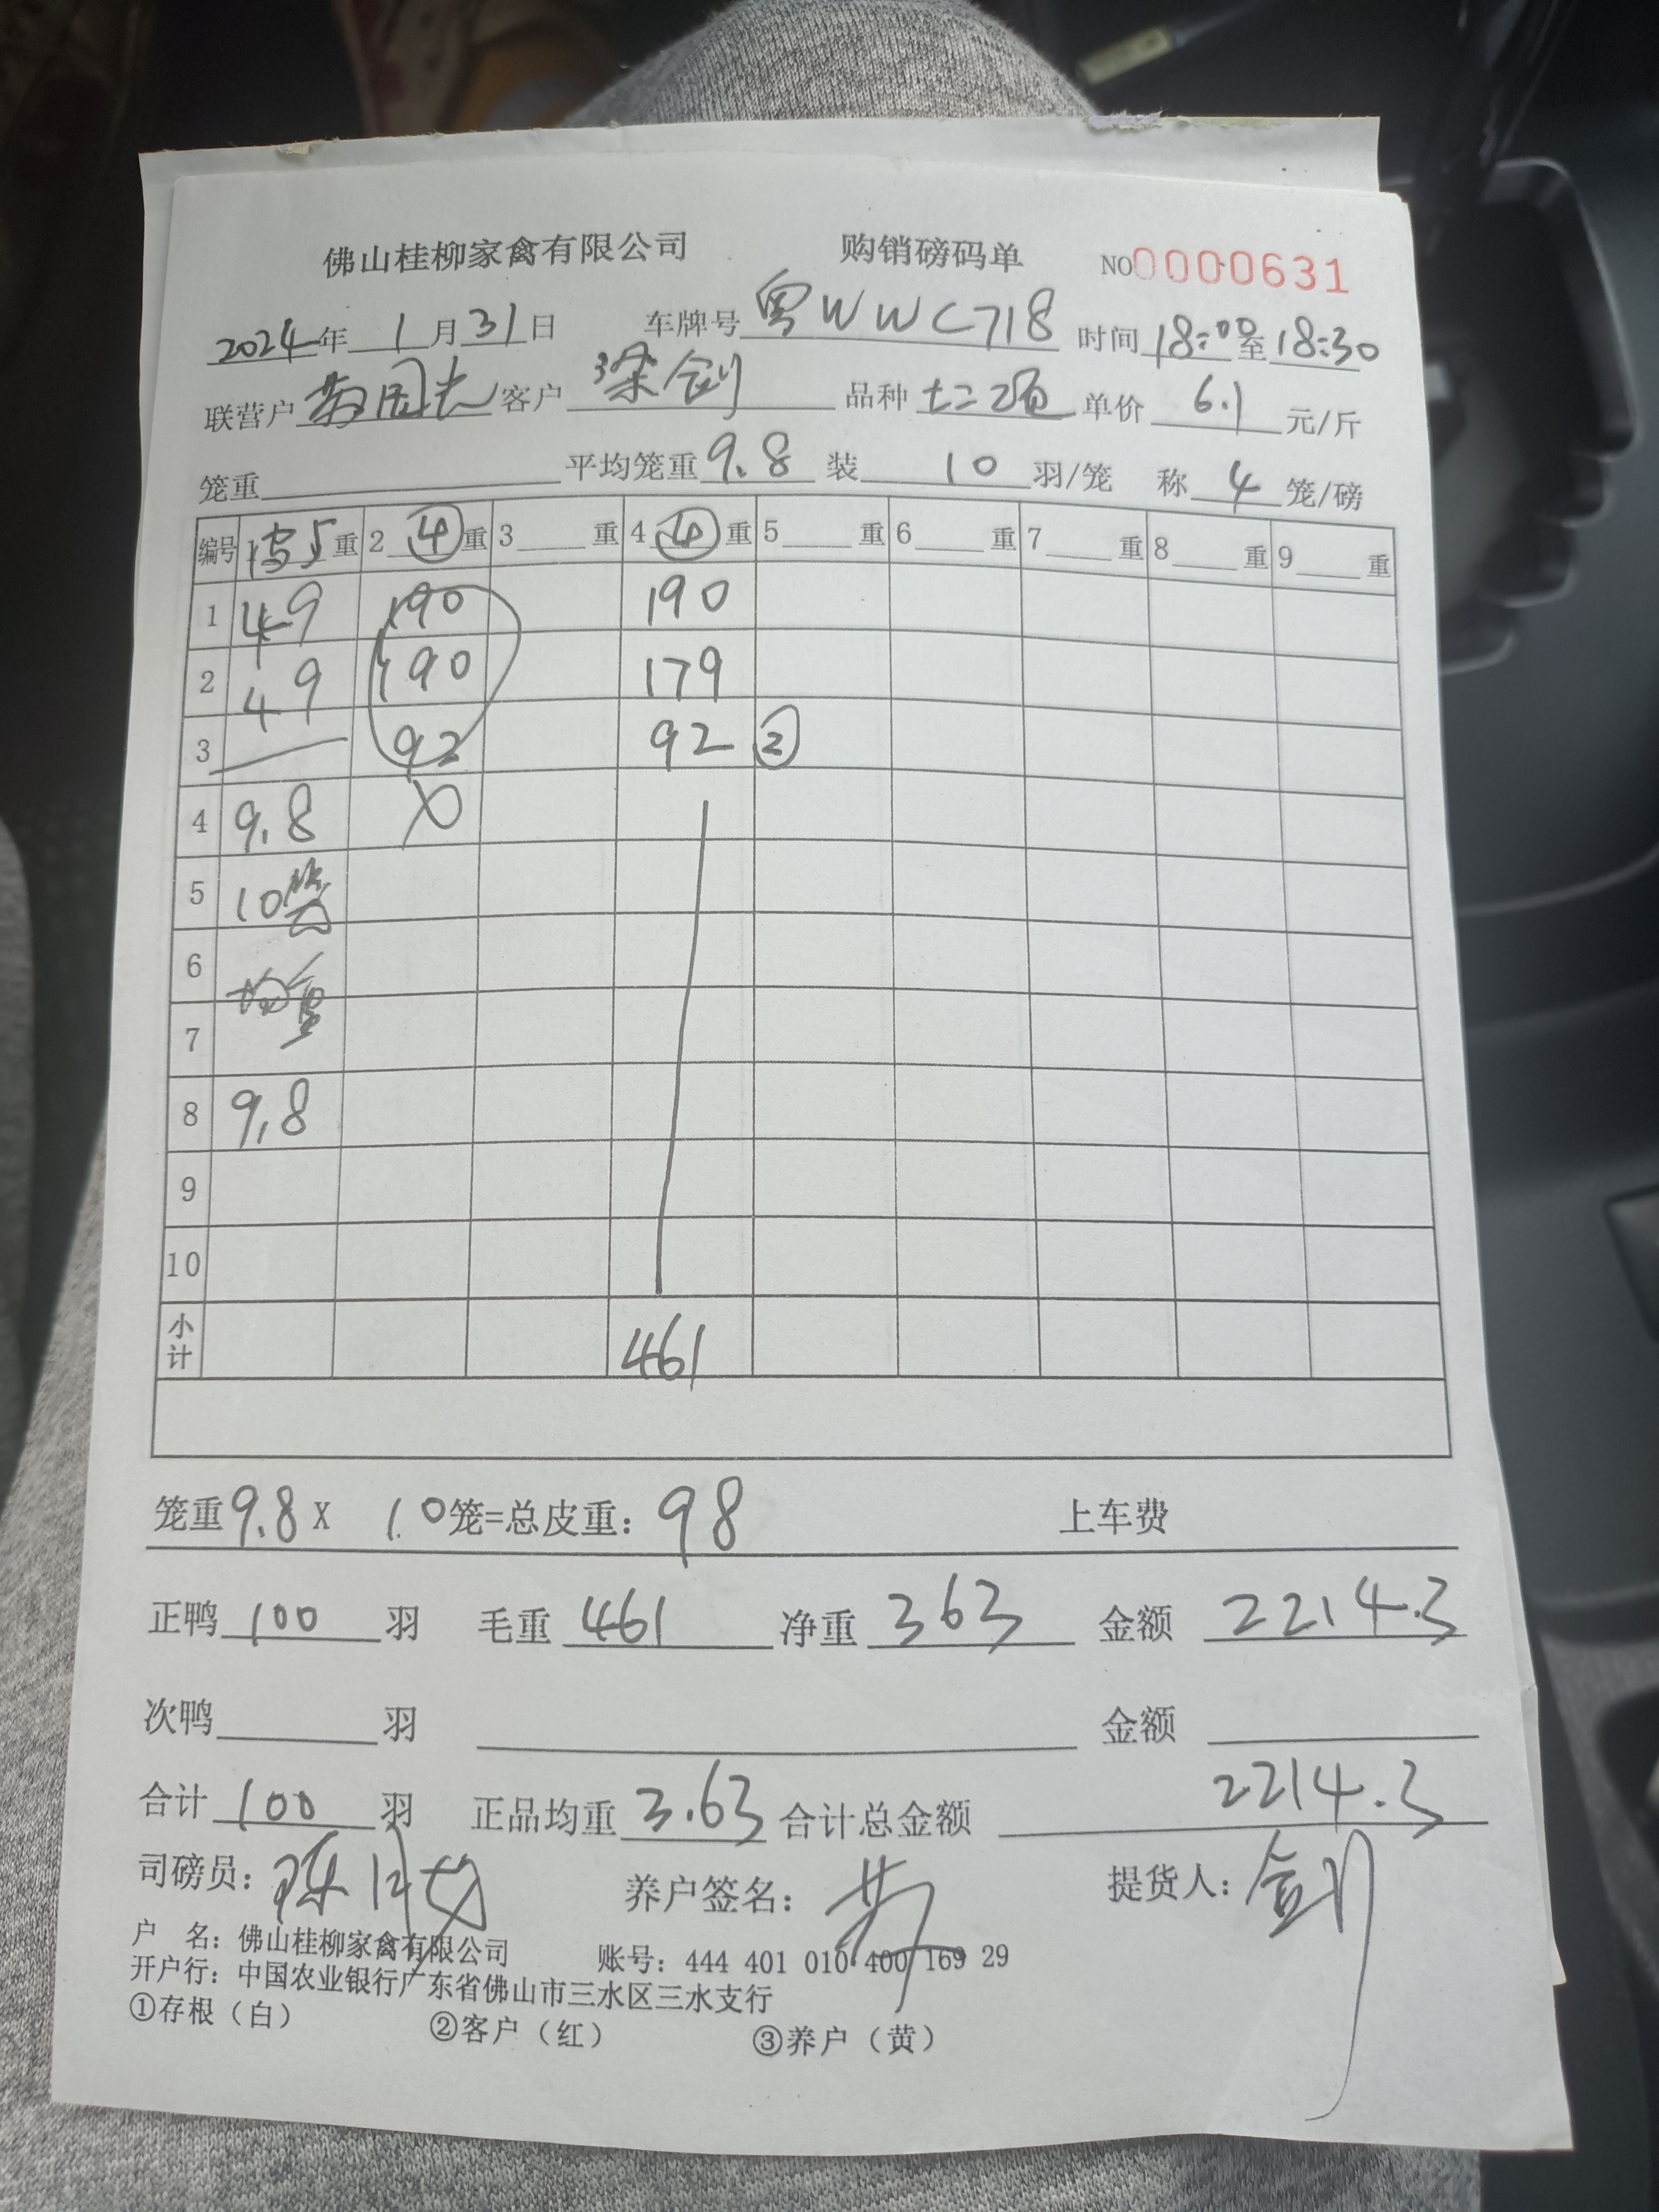 佛山桂柳家禽有限公司 购销磅码单 NO0000631
2024年 1月31日 车牌号 粤WWC718 时间 18:00至18:30
联营户 客户 梁剑 品种 单价 6.1 元/斤
笼重 平均笼重 9.8 装 10 羽/笼 称 4 笼/磅
编号 1 重 2 ④ 重 3 重 4 ④ 重 5 重 6 重 7 重 8 重 9 重
1 49 190 190
2 49 190 179
3 92 92 ②
4 9.8
5 10笼
6 均重
7
8 9.8
9
10
小计 461
笼重9.8X 10笼=总皮重：98 上车费
正鸭 100 羽 毛重 461 净重 363 金额 2214.3
次鸭 羽 金额
合计 100 羽 正品均重 3.63 合计总金额 2214.3
司磅员： 养户签名：黄 提货人：剑
户 名：佛山桂柳家禽有限公司 账号：444 401 010 400 169 29
开户行：中国农业银行广东省佛山市三水区三水支行
①存根（白） ②客户（红） ③养户（黄）